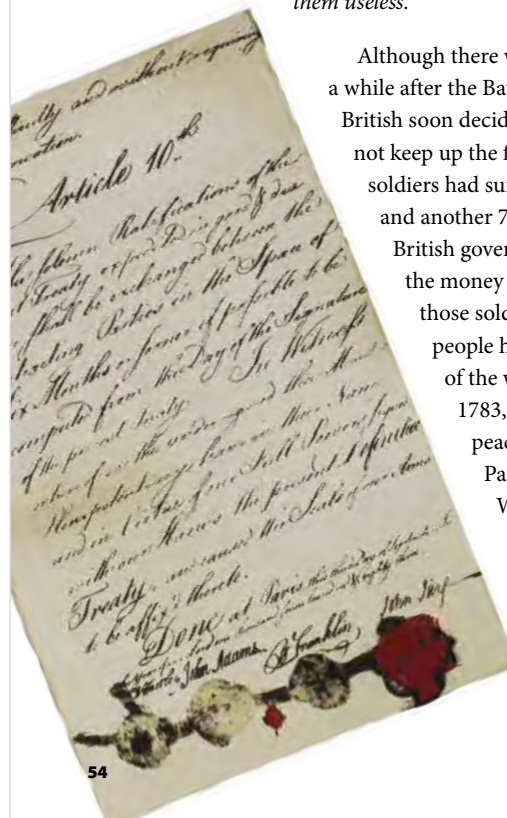 them useless.
Although there
a while after the
British soon
not keep up the
soldiers had
and another 7
British
the money
those
people
of the
1783,
faculty and without requiring
Article 10th
The solemn Ratifications of the
Treaty expedited in good & due
shall be exchanged between the
Parties in the Space of
Months or sooner if possible to be
computed from the Day of the Signature
of the present Treaty. In Witness
we the undersigned their
have in their Name
and in Virtue of our Full Powers
with our Hands the present Definitive
Treaty, and caused the Seals of our Arms
to be affix'd thereto.
Done at Paris this third day of
John Adams B Franklin John Jay
54